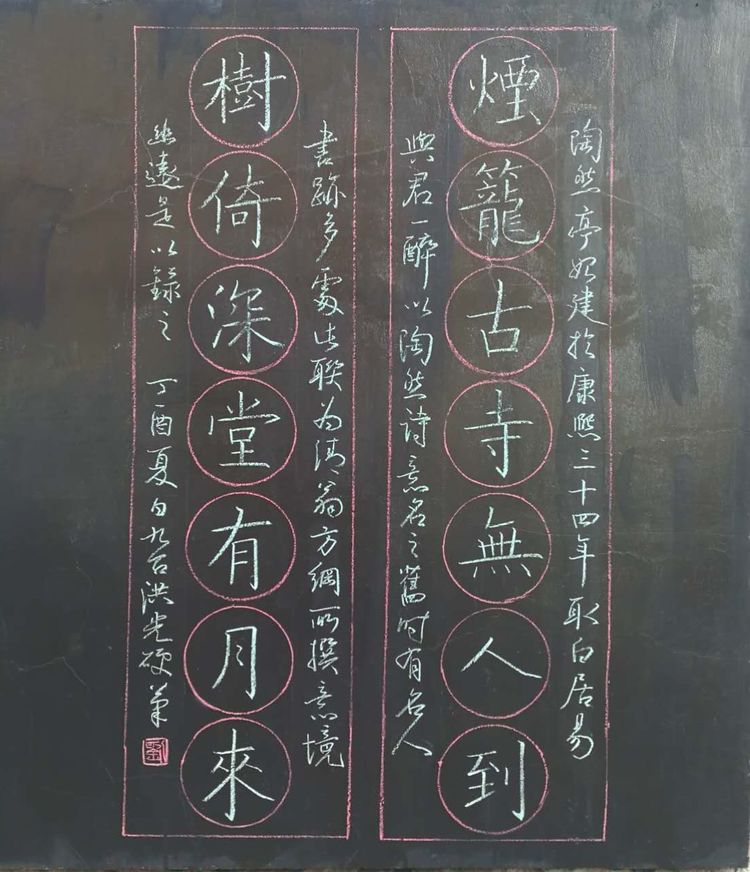 陶然亭始建於康熙三十四年取白居易
煙籠古寺無人到
與君一醉以陶然詩意名之舊時有名人
書跡多處此聯為清翁方綱所撰意境
樹倚深堂有月來
幽遠是以錄之 丁酉夏日九台洪光硬筆
劉